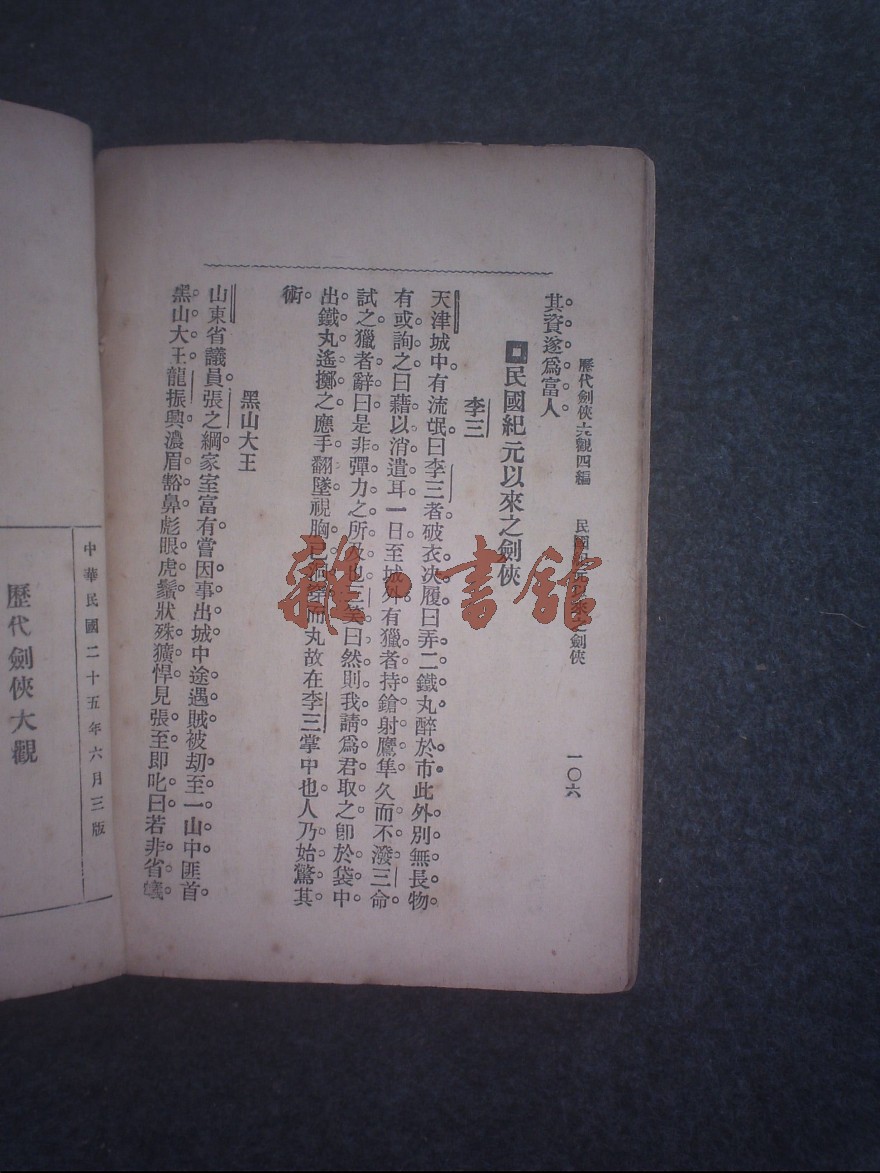 歷代劍俠大觀四編　民國紀元以來之劍俠　一〇六
其資遂爲富人
民國紀元以來之劍俠
李三
天津城中有流氓曰李三者破衣決履日弄二鐵丸醉於市此外別無長物
有或詢之曰藉以消遣耳一日至城外有獵者持鎗射鷹隼久而不潑三命
試之獵者辭曰是非彈力之所及也三笑曰然則我請爲君取之卽於袋中
出鐵丸遙擲之應手翻墜視胸已洞穿而丸故在李三掌中也人乃始驚其
術
黑山大王
山東省議員張之綱家室富有嘗因事出城中途遇賊被刼至一山中匪首
黑山大王龍振興濃眉豁鼻彪眼虎鬚狀殊獷悍見張至即叱曰若非省議
中華民國二十五年六月三版
歷代劍俠大觀
雜·書館